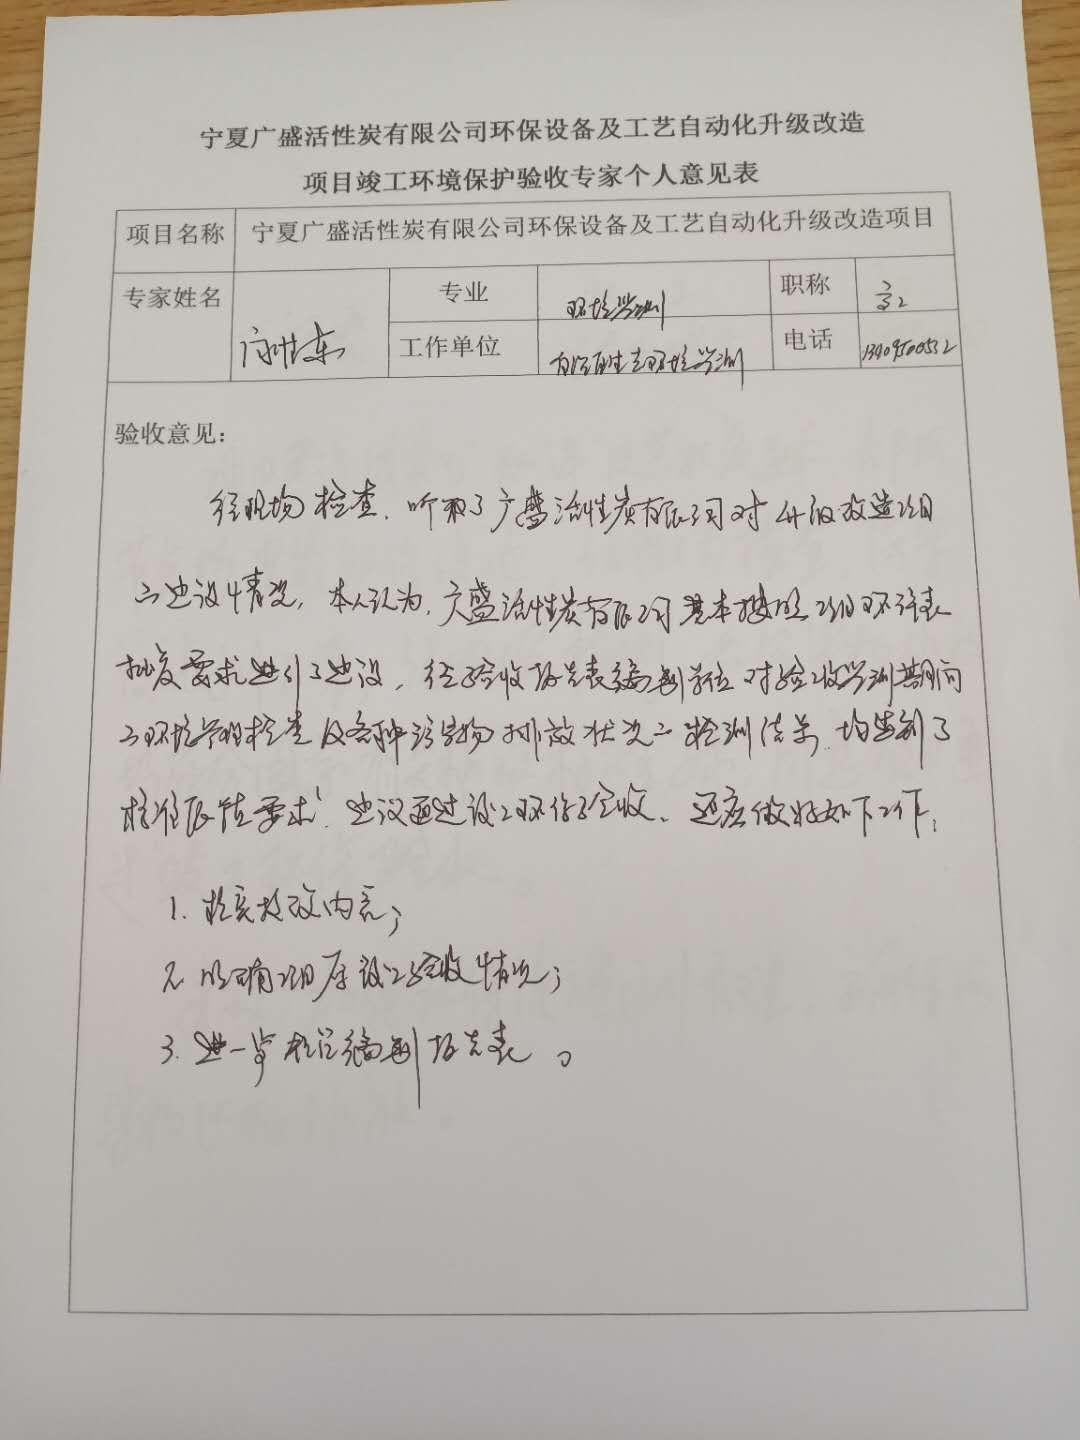 宁夏广盛活性炭有限公司环保设备及工艺自动化升级改造
项目竣工环境保护验收专家个人意见表
项目名称 宁夏广盛活性炭有限公司环保设备及工艺自动化升级改造项目
专家姓名 专业 环境监测 职称 高工
工作单位 环境监测 电话
验收意见：
经现场检查，听取了广盛活性炭有限公司对升级改造项目
之建设情况，本人认为，广盛活性炭有限公司基本按照项目环评表
批复要求进行了建设，经验收报告表编制单位对验收监测期间
之环境管理检查及各种污染物排放状况之检测结果，均达到了
标准限值要求，建议通过竣工环保验收。还应做好如下工作：
1. 核实技改内容；
2. 明确项目原竣工验收情况；
3. 进一步校正编制报告表。